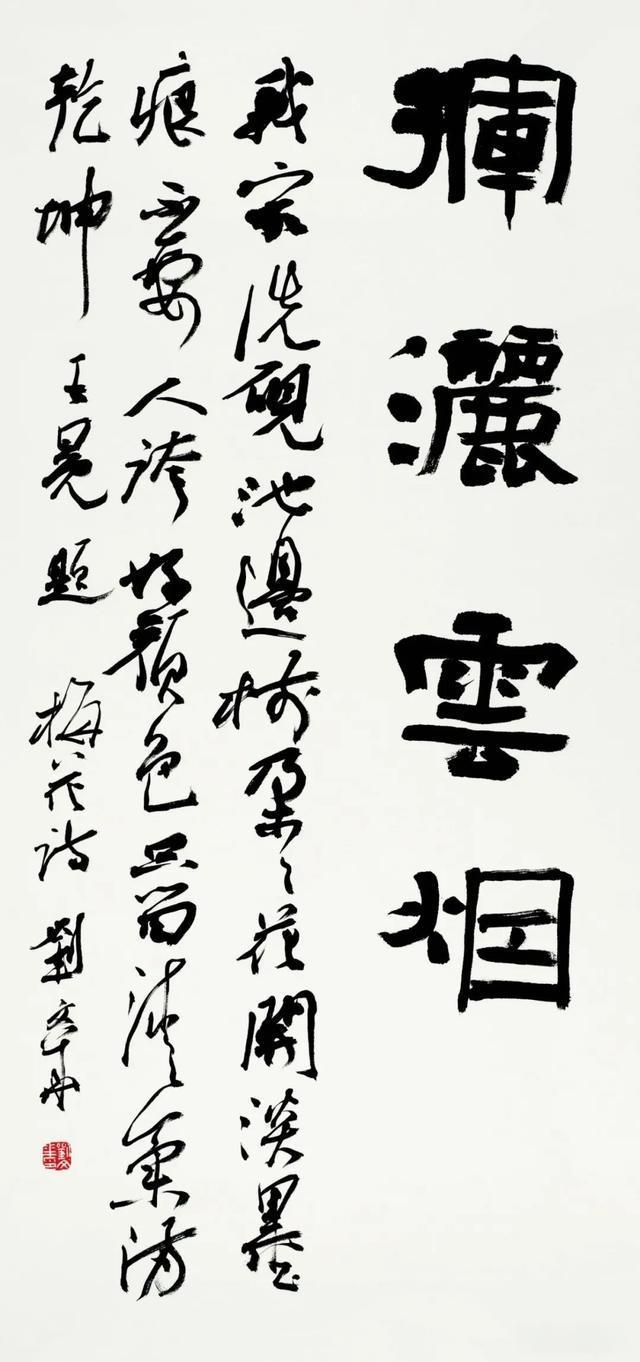 揮灑雲烟
我家洗硯池邊樹朶々花開淡墨
痕不要人誇好顏色只留清氣滿
乾坤 王冕題 梅花詩 劉文